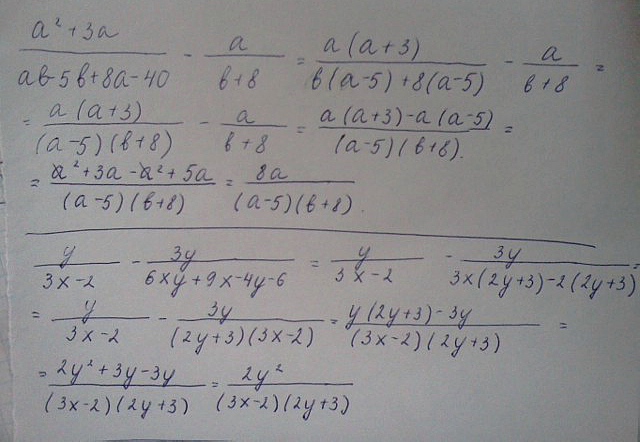 (a² + 3a)/(ab - 5b + 8a - 40) - a/(b + 8) = a(a + 3)/(b(a - 5) + 8(a - 5)) - a/(b + 8) =
= a(a + 3)/((a - 5)(b + 8)) - a/(b + 8) = (a(a + 3) - a(a - 5))/((a - 5)(b + 8)). =
= (a² + 3a - a² + 5a)/((a - 5)(b + 8)) = 8a/((a - 5)(b + 8)).
y/(3x - 2) - 3y/(6xy + 9x - 4y - 6) = y/(3x - 2) - 3y/(3x(2y + 3) - 2(2y + 3)) =
= y/(3x - 2) - 3y/((2y + 3)(3x - 2)) = (y(2y + 3) - 3y)/((3x - 2)(2y + 3)) =
= (2y² + 3y - 3y)/((3x - 2)(2y + 3)) = 2y²/((3x - 2)(2y + 3))